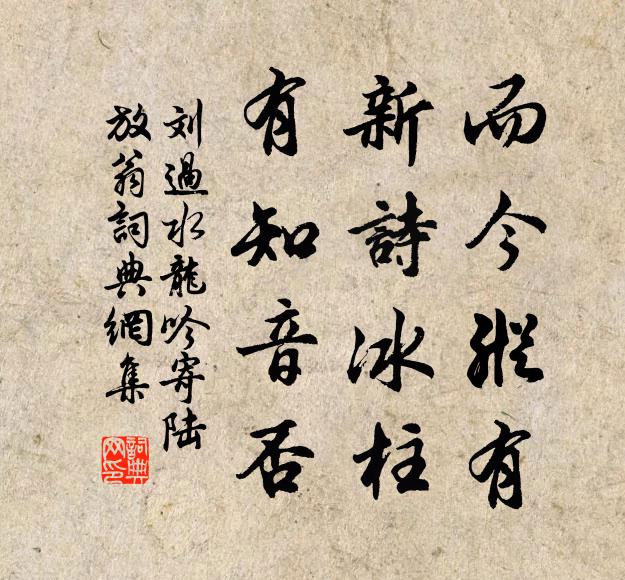 而今縱有
新詩冰柱
有知音否
刘過水龍吟寄陆
放翁詞典網集
詞典
网印